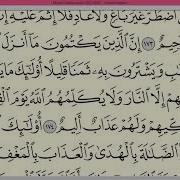 ٱضْطُرَّ غَيْرَ بَاغٍ وَلَا عَادٍ فَلَآ إِثْمَ عَلَيْهِ إِ
حِيمٌ ١٧٣ إِنَّ ٱلَّذِينَ يَكْتُمُونَ مَآ أَنزَلَ
بِ وَيَشْتَرُونَ بِهِۦ ثَمَنًا قَلِيلًا أُو۟لَٰٓئِكَ مَا
هِمْ إِلَّا ٱلنَّارَ وَلَا يُكَلِّمُهُمُ ٱللَّهُ يَوْمَ ٱلْقِ
كِّيهِمْ وَلَهُمْ عَذَابٌ أَلِيمٌ ١٧٤ أُو۟لَٰٓئِكَ
ٱلضَّلَٰلَةَ بِٱلْهُدَىٰ وَٱلْعَذَابَ بِٱلْمَغْفِ